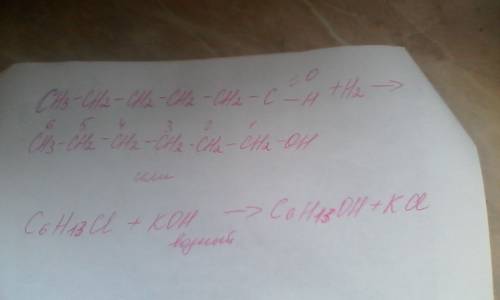 CH3-CH2-CH2-CH2-CH2-C=O-H +H2 →
6 5 4 3 2 1
CH3-CH2-CH2-CH2-CH2-CH2-OH
или
C6H13Cl + KOH → C6H13OH + KCl
водный